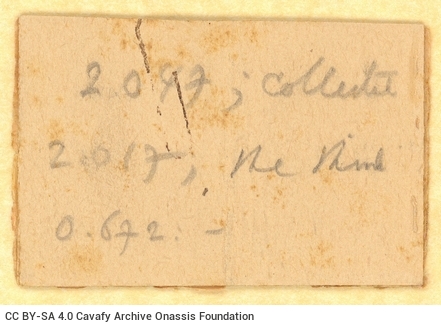 2.047; collected
2.017; the third
0.672. -
CC BY-SA 4.0 Cavafy Archive Onassis Foundation